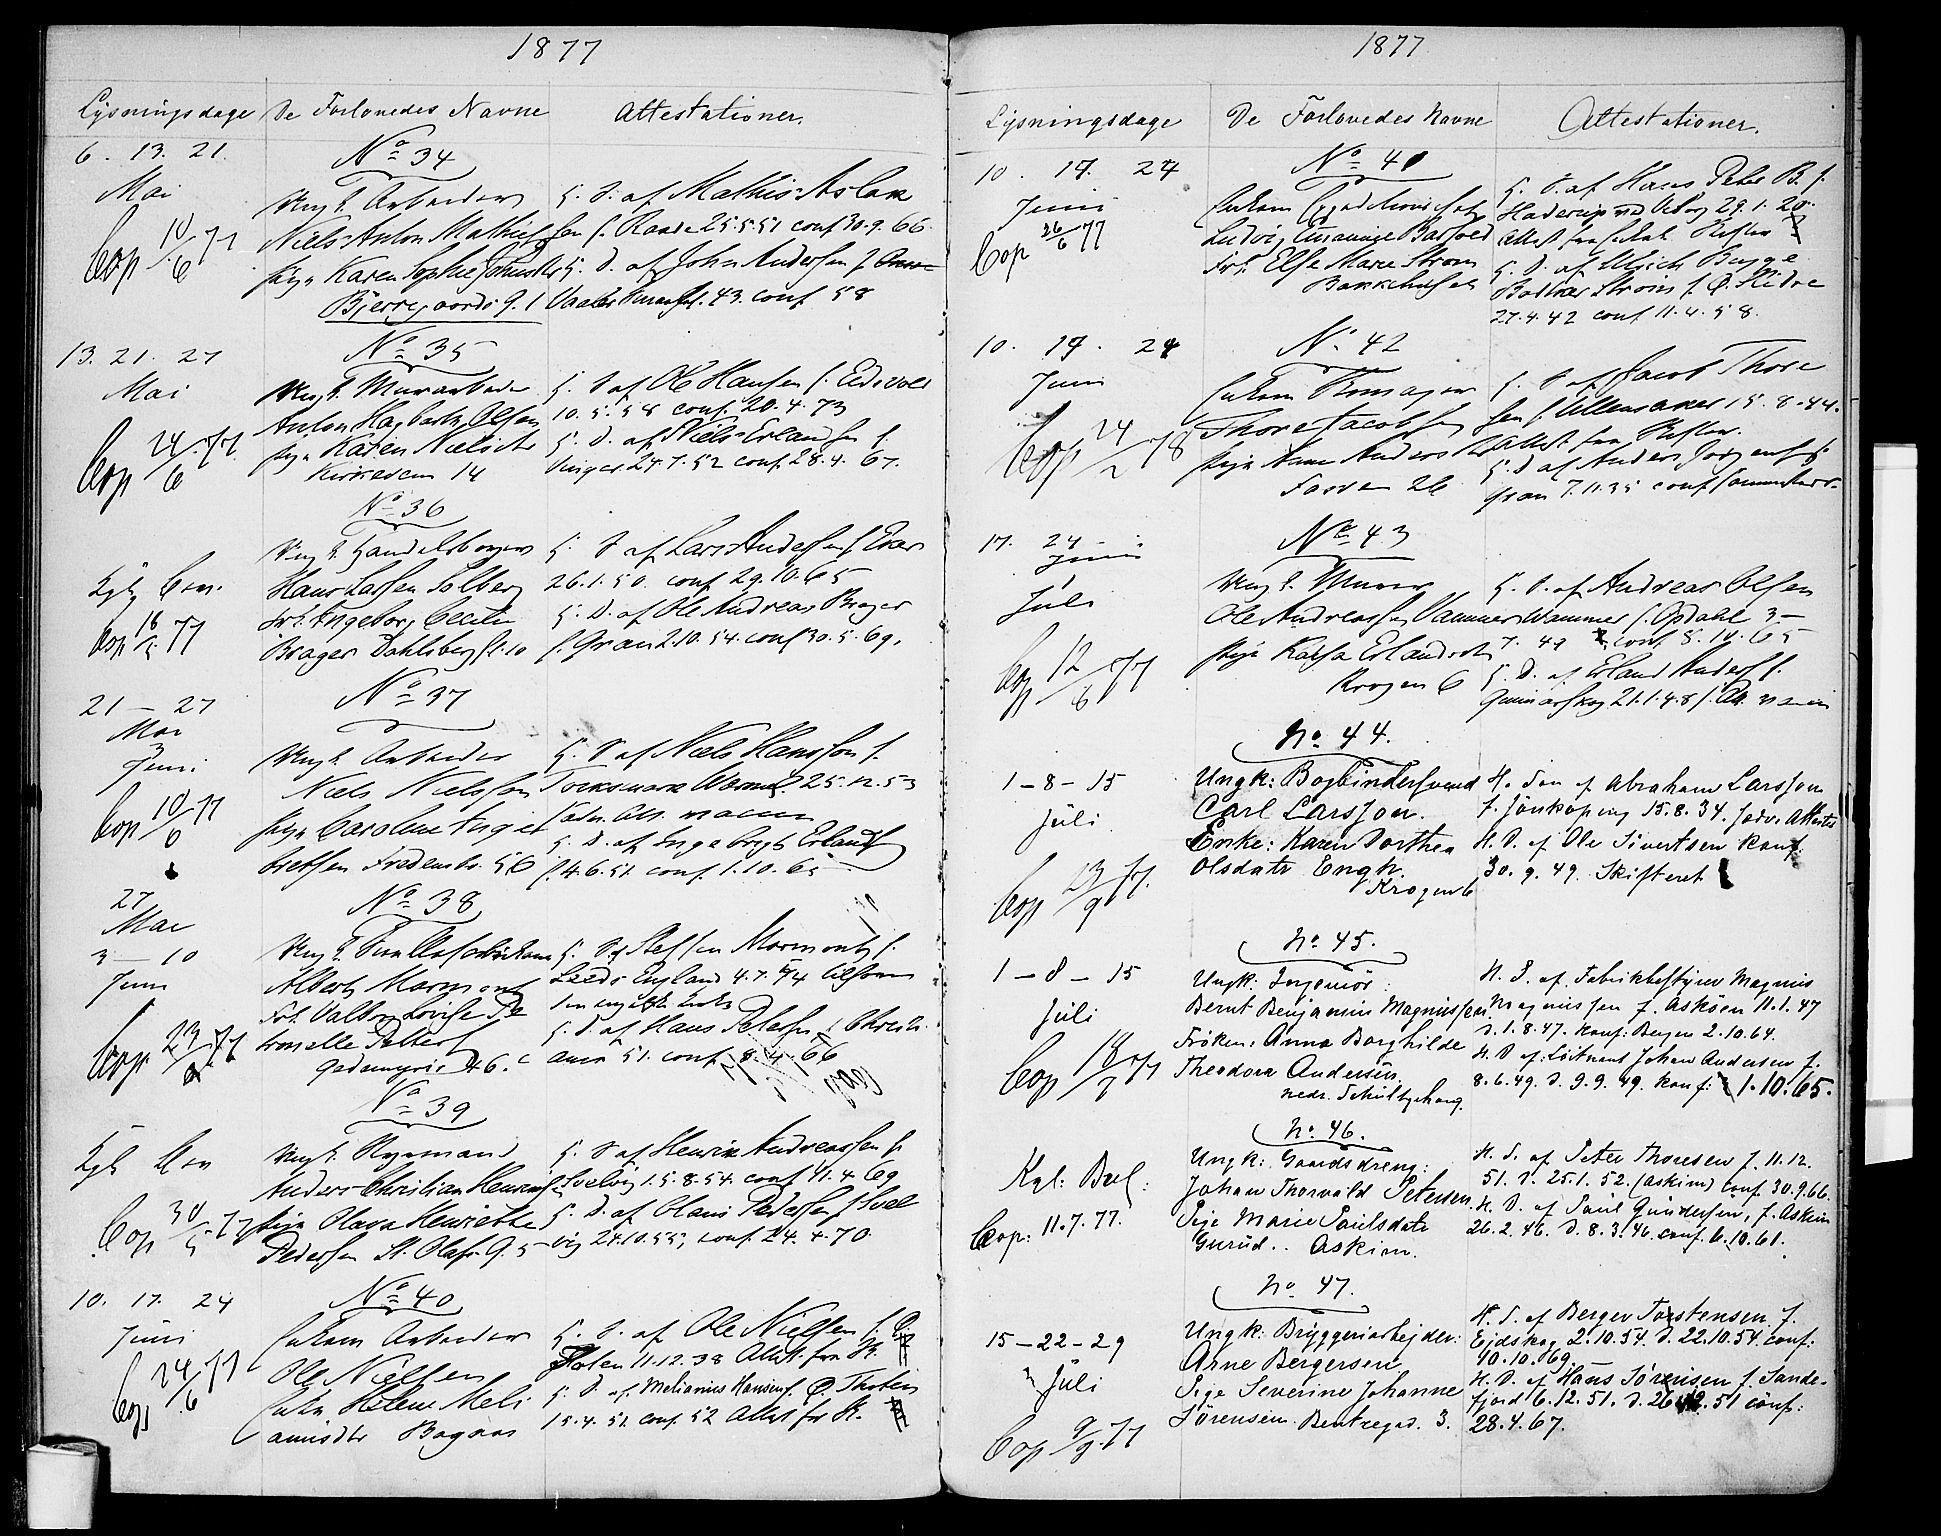 1877
Lysningsdage De Forlovedes Navne Attestationer.
6. 13. 21.
Mai
Cop 10/6 77
No 34
Ungk. Arbeider
Niels Anton Mathiesen
Pige Karen Sophie
Bjerregaards g. 1
H. S. af Mathis Aslak
sen f. Raade 25.5.51 conf 30.9.66
H. D. af John Andersen f.
Vaaler 43. conf 58
13. 21. 27
Mai
Cop 24/6 77.
No 35
Ungk. Murarbeider
Anton Hagbarth Olsen
Pige Karen Nielsdtr
Kirkeveien 14
H. S. af Ole Hansen f. Eidsvold
10.5.58 conf. 20.4.73
H. D. af Niels Erlandsen f.
Vinger 24.7.52 conf. 28.4.67.
Kgl. Bev.
Cop 18/5 77
No 36
Ungk. Handelsborger
Hans Larsen Solberg
Frk. Ingeborg Cecilie
Brager Dahlsberg st. 10
H. S. af Lars Andersen f.
26.1.50. conf 29.10.65
H. D. af Ole Andreas Brager
f. Gran 2.10.54. conf 30.5.69.
21 – 27
Mai
3
Juni
Cop 10/6 77
No 37
Ungk. Arbeider
Niels Nielssen
Pige Caroline Inge
bretsen Fredensb. 56
H. S. af Niels Hansson f.
Torksmark 25.12.53
H. D. af Ingebrigt Erlands
f. 4.6.51. conf. 1.10.65
27
Mai
3 – 10
Juni
Cop 23/ 77
No 38
Ungk.
Albert Marmont
Frk. Valborg Lovise Pe
tronelle Petters
46. c
H. S. af Steffen Marmont f.
Leeds England 4.7.54
den engelske Kirke
H. D. af Hans Petersen f. Christi
ania 51. conf. 8.4.66
Kgl. Bev
Cop 30/5 77
No 39
Ungk.
Anders Christian Henriks
Pige Olava Henriette
Pedersen St. Olafs g. 5
H. S. af Henrik Andreassen f.
Svelvig 15.8.54. conf 11.4.69
H. D. af Olaus Pedersen f. Svel
vig 24.10.55, conf. 24.4.70.
10. 17. 24
Juni
Cop 24/6 77
No 40
Enkem. Arbeider
Ole Nielsen
Enke Helene Meli
anusdtr Bogaas
H. S. af Ole Nielsen f. Ø.
Toten 11.12.38 Attest fra
H. D. af Melianus Hansen f. Ø. Thoten
15.4.51. conf. 52 Attest fr
1877
Lysningsdage De Forlovedes Navne Attestationer.
10. 17. 24
Juni
Cop 26/6 77
No 41
Enkem.
Ludvig Barfoed
Frk. Else Marie Strøm
Bakkehuset
H. S. af Hans Peter B. f.
Haderup ved Viborg 29.1.20.
Attest fra
H. D. af Ulrich Bugge
Strøm f. Ø. Slidre
27.4.42 conf 11.4.58.
10. 17. 24
Juni
Cop 24/2 78
No 42
Enkem.
Thore Jacobsen
Pige Anne Andersdtr
Fossvn 26
H. S. af Jacob Thore
sen f. Ullensaker 15.8.44.
Attest fra Skiften.
H. D. af Anders Jørgens f.
Gran 7.11.35 conf
17. 24 –
Juni
1
Juli
Cop 12/8 77
No 43
Ungk. Murer
Ole Andreassen Vammer
Pige Kajsa Erlandsdtr
Krogen 6
H. S. af Andreas Olsen
Wammer f. Opdahl 3 –
7. 49 conf 5.10.65
H. D. af Erland Anders f.
Gunnarskog 21.1.48
1 – 8 – 15
Juli
Cop 23/9 77.
No 44.
Ungk: Bogbindersvend
Carl Larsson.
Enke: Karen Dorthea
Olsdatr Engh.
Krogen 6
H. Søn af Abraham Larsson
f. Jönköping 15.8.34. Forev. Attester
H. D. af Ole Sivertsen konf:
30.9.49. Skifteret
1 – 8 – 15
Juli
Cop 18/7 77
No 45.
Ungk: Ingeniør:
Bernt Benjamin Magnussen.
Frøken: Anna Borghilde
Theodora Andersen.
nedr. Schultzehaug.
H. S. af Fabrikbestyrer Magnus
Magnussen f. Askøen 11.1.47
D. 1.8.47. konf: Bergen 2.10.64.
H. D. af: Løitnant Johan Andersen f.
8.6.49. D. 9.9.49. konf: 1.10.65.
Kgl: Bev:
Cop: 11.7.77.
No 46.
Ungk: Gaardsdreng:
Johan Thorvald Petersen.
Pige Marie Paulsdatr
Gurud.. Askim.
H. S. af Peter Thoresen f. 11.12.
51. D. 25.1.52. (Askim) conf. 30.9.66.
H. D. af Paul Gundersen, f. Askim
26.2.46. D. 8.3.46. conf. 6.10.61.
15 – 22 – 29
Juli
Cop 9/9 77
No 47.
Ungk: Bryggeriarbejder:
Arne Bergersen
Pige Severine Johanne
Sørensen. Bentsegad. 3.
H. S. af Berger Torstensen f.
Ejdskog 2.10.54. D. 22.10.54. conf:
10.10.69
H. D. af Hans Sørensen f. Sande-
fjord 6.12.51. D. 26.12.51 conf:
28.4.67.